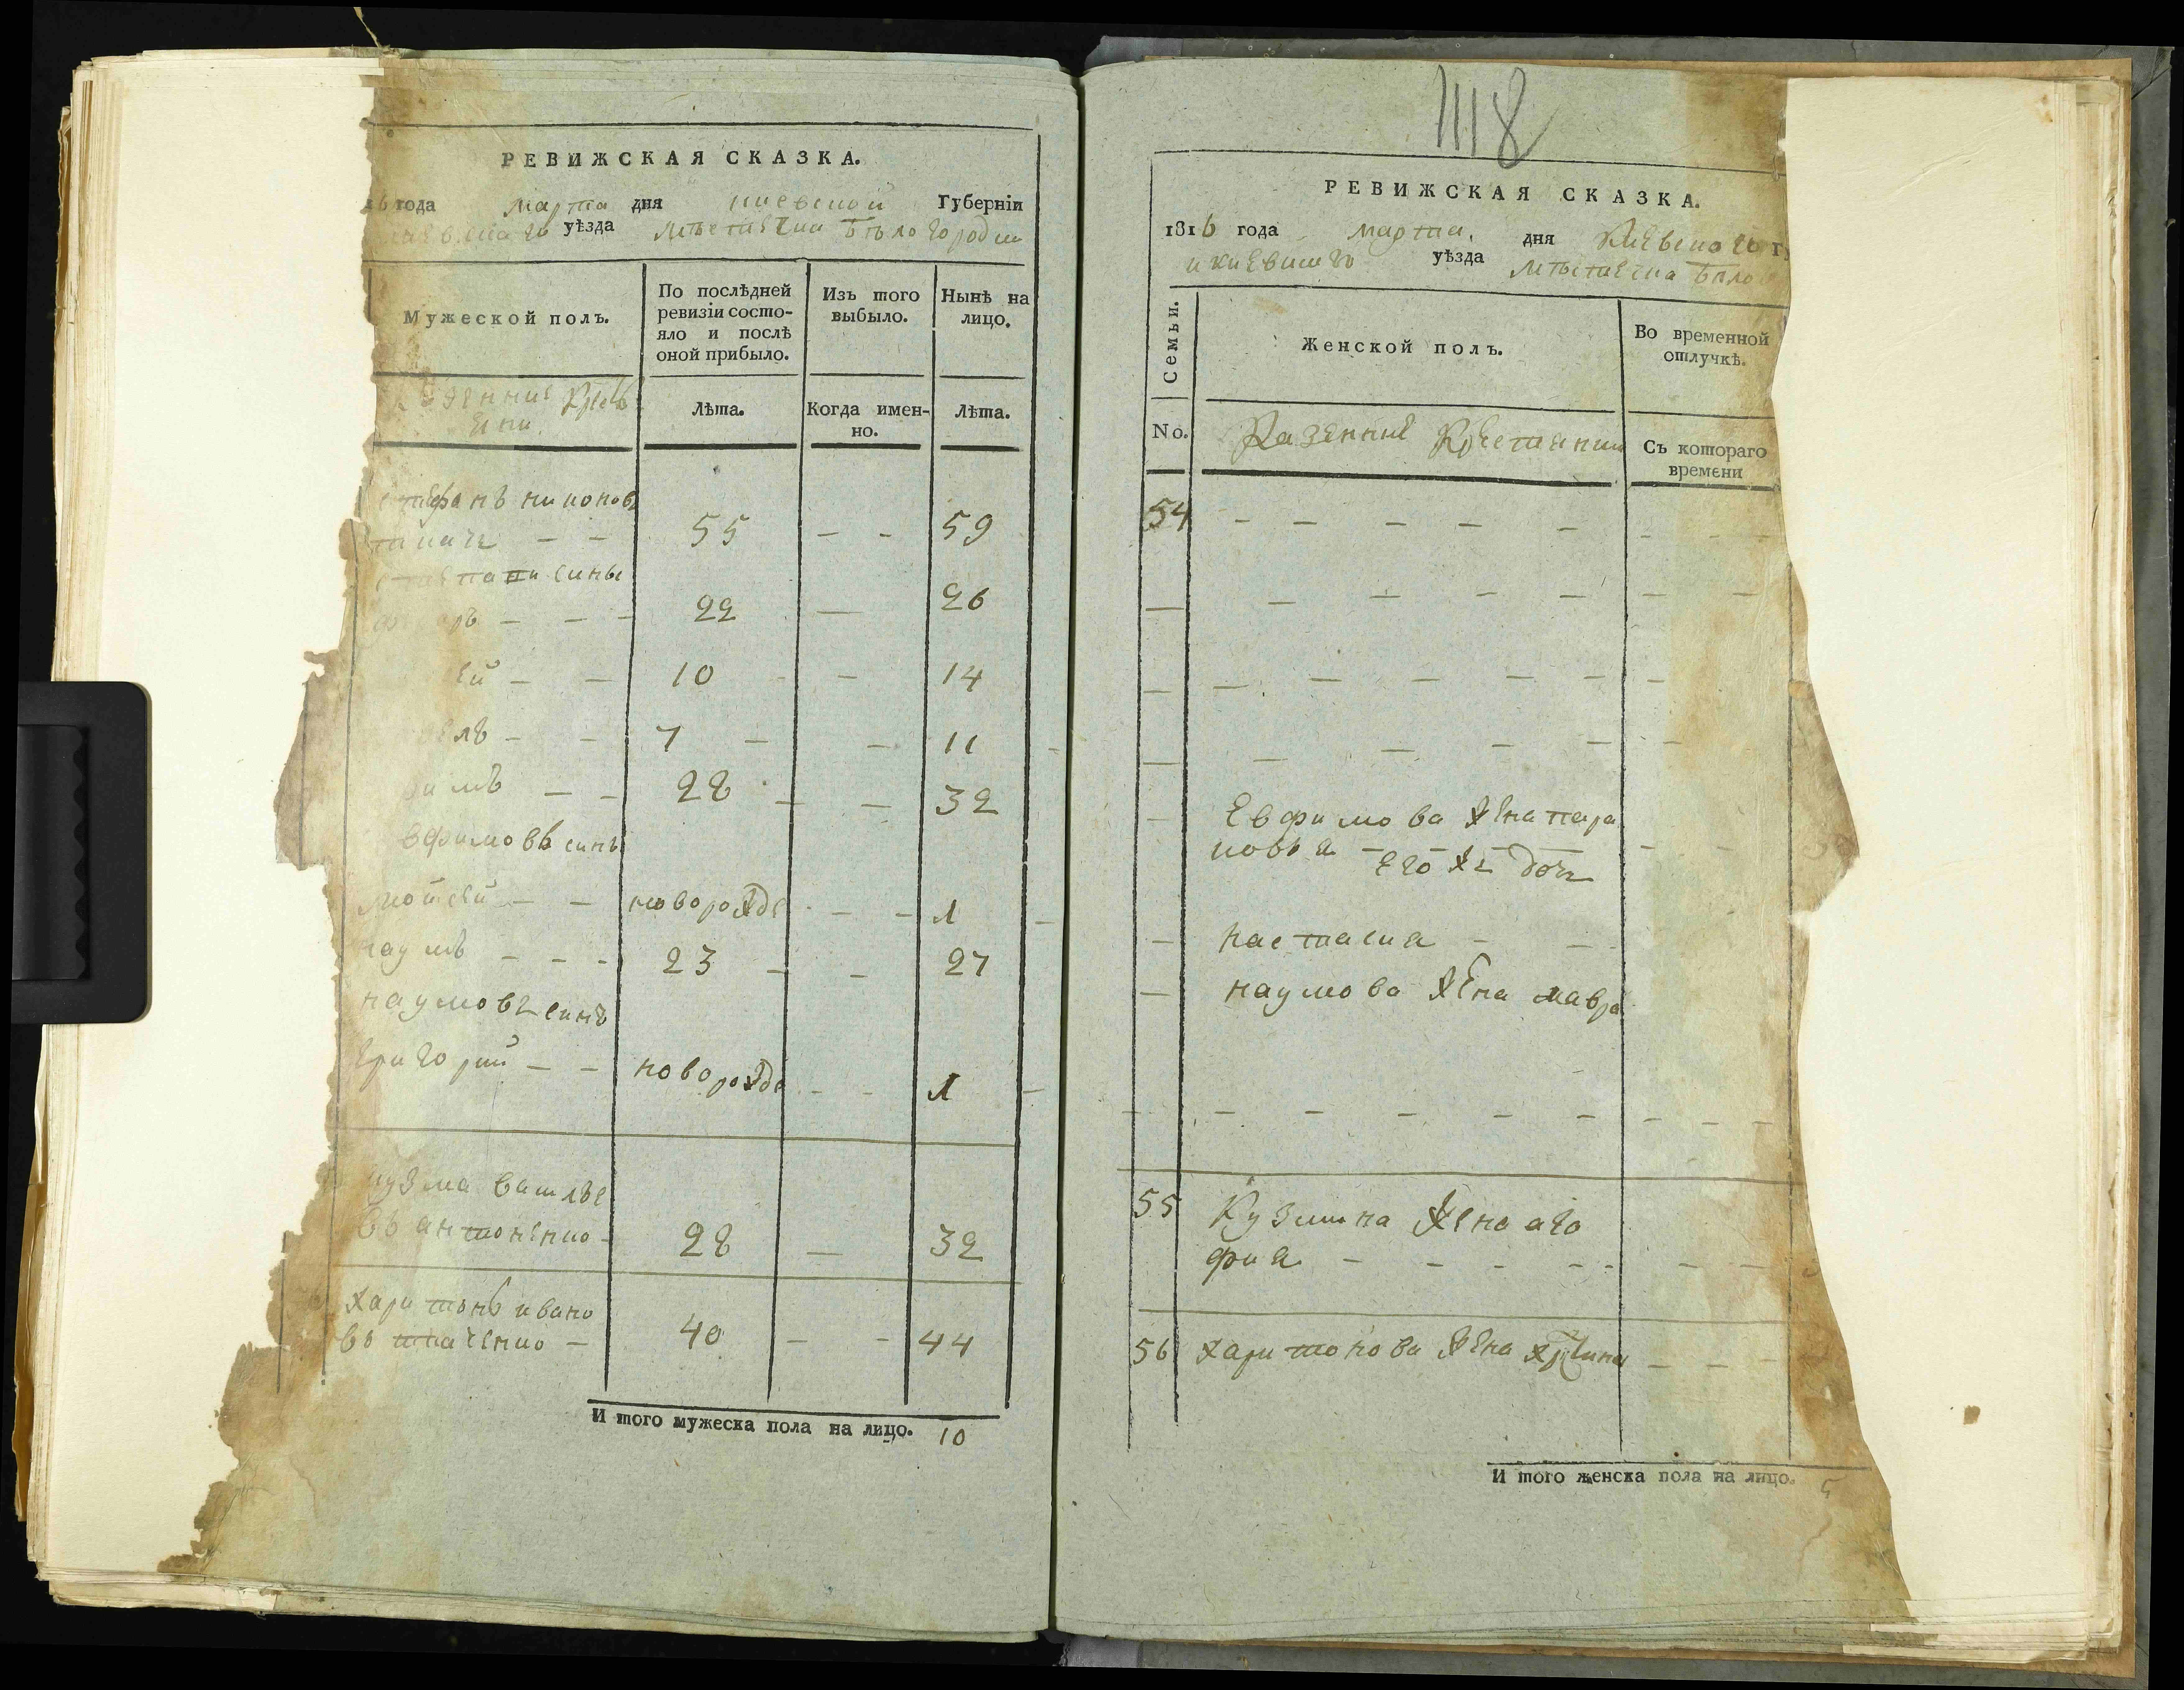 РЕВИЖСКАЯ СКАЗКА.
года марта дня киевской Губерніи
уѣзда мѣстечка Бѣлогородки
Мужеской полъ.
По послѣдней ревизіи состо-
яло и послѣ
оной прибыло.
Изъ того
выбыло.
Нынѣ на
лицо.
Лѣта.
Когда имен-
но.
Лѣта.
стефанъ никоновъ
ткачь – – 55 – – 59
степани сины
22 – 26
10 – 14
7 – – 11
28 – – 32
мойсей – – новорожде – – 1
наумъ – – – 23 – – 27
наумовъ синъ
григорий – – новорожде – – 1
кузма василье
въ антоненко – 28 – 32
харитонъ ивано
въ ткаченко – 40 – – 44
И того мужеска пола на лицо. 10
118
РЕВИЖСКАЯ СКАЗКА.
1816 года марта дня Киевского
уѣзда мѣстечка
Семьи.
No.
Женской полъ.
Во временной
отлучкѣ.
Казенние Крестянки
Съ котораго
времени
54 – – – – –
Евфимова жена пара
ковья – – – –
его же дочь
настасия – –
наумова жена мавра
55 Кузмина жена аго
фия – – – – –
56 харитонова жена
И того женска пола на лицо. 5